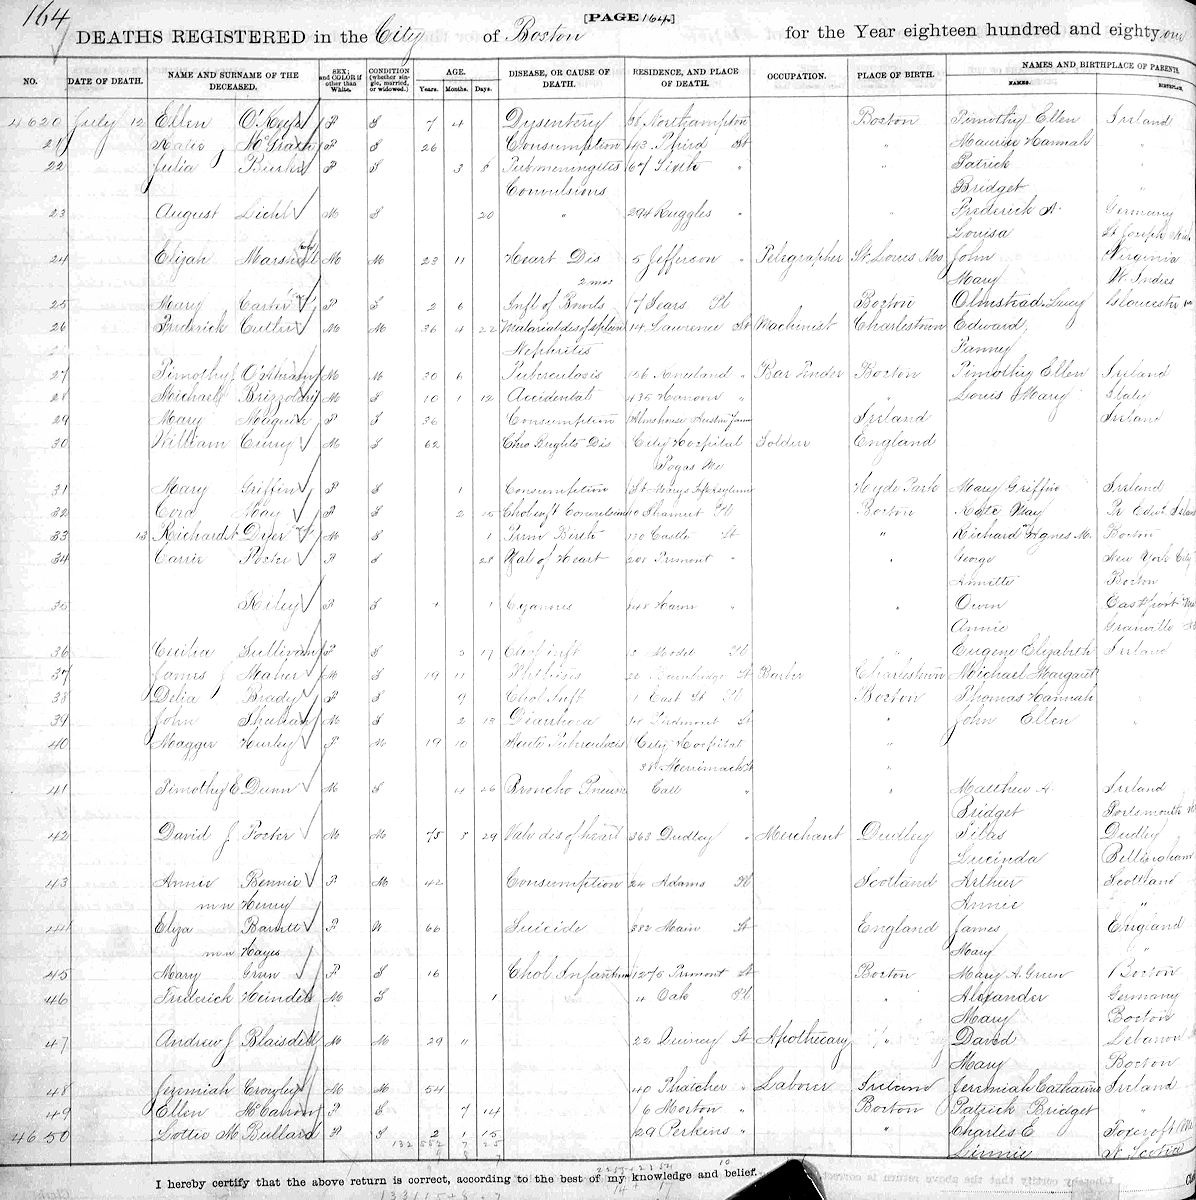 164
[PAGE 164.]
DEATHS REGISTERED in the City of Boston for the Year eighteen hundred and eighty one
NO. DATE OF DEATH. NAME AND SURNAME OF THE DECEASED. SEX; and COLOR if other than White. CONDITION (whether single, married, or widowed.) AGE. Years. Months. Days. DISEASE, OR CAUSE OF DEATH. RESIDENCE, AND PLACE OF DEATH. OCCUPATION. PLACE OF BIRTH. NAMES AND BIRTHPLACE OF PARENTS. NAMES. BIRTHPLACE.
4620 July 12 Ellen F S 7 4 Dysentery Northampton Boston Timothy Ellen Ireland
21 Katie McGrath F S 26 Consumption 143 Third St " Maurice Hannah "
22 Julia Burke F S 3 8 Tub meningitis 67 Sixth " " Patrick
Convulsions Bridget "
23 August Liehl M S 20 " 294 Ruggles " " Frederick A. Germany
Louisa St Joseph
24 Elijah Marshall M M 23 11 Heart Dis 5 Jefferson " Telegrapher St. Louis Mo John Virginia
2 mos Mary W. Indies
25 Mary Carter F S 2 6 Infl of Bowels 17 Sears Pl Boston Olmstead Lucy Gloucester
26 Frederick Cutler M M 36 4 22 Malarial dis of spleen 14 Lawrence St Machinist Charlestown Edward,
Nephritis Fanny
27 Timothy J. M M 30 6 Tuberculosis 146 Kneeland " Bar Tender Boston Timothy Ellen Ireland
28 Michael M S 10 1 12 Accidental 435 Hanover " " Louis Mary Italy
29 Mary Maguire F S 36 Consumption Almshouse Austin Farm Ireland Ireland
30 William M S 62 Chro Brights Dis City Hospital Soldier England
Togas Me
31 Mary Griffin F S 1 Consumption St Marys Inft Asylum Hyde Park Mary Griffin Ireland
32 Cora May F S 2 15 Chol inft Convulsions Shawmut Boston Kate May Pr Edw. Island
33 13 Richard Dyer M S 1 Prem Birth 170 Castle St " Richard Agnes M. Boston
34 Carrie Foster F S 28 Mal of Heart 201 Tremont " " George New York City
Annette Boston
35 Riley F S 1 Cyanosis 348 " " Owen Eastport Me
Annie Granville
36 Cecilia Sullivan F S 3 17 Chol inft 2 Model Pl " Eugene Elizabeth Ireland
37 James J Maher M S 19 11 Phthisis Bainbridge St Barber Charlestown Michael Margaret "
38 Delia Brady F S 9 Chol Inft 1 East St Pl Boston Thomas Hannah "
39 John M S 2 13 Diarrhoea 14 Piedmont St " John Ellen "
40 Maggie Hurley F M 19 10 Acute Tuberculosis City Hospital "
38 Merrimack St "
41 Timothy E Dunn M S 4 26 Broncho Pneum Call " " Matthew A. Ireland
Bridget Portsmouth
42 David J. Foster M M 75 8 29 Valv dis of heart 363 Dudley " Merchant Dudley Silas Dudley
Lucinda Bellingham
43 Annie Rennie F M 42 Consumption 24 Adams Pl Scotland Arthur Scotland
m n Henry Annie "
44 Eliza Barrett F W 66 Suicide 382 Main St England James England
m n Hayes Mary "
45 Mary Green F S 16 Chol Infantum 1275 Tremont St Boston Mary A. Green Boston
46 Frederick M S 1 4 Oak Pl " Alexander Germany
Mary Boston
47 Andrew J Blaisdell M M 29 11 22 Quincy St Apothecary " David Lebanon
Mary Boston
48 Jeremiah Crowley M M 54 40 Thatcher " Laborer Ireland Jeremiah Catharine Ireland
49 Ellen F S 7 14 6 Morton " Boston Patrick Bridget "
4650 Lottie M Bullard F S 2 1 15 29 Perkins " " Charles E
I hereby certify that the above return is correct, according to the best of my knowledge and belief.